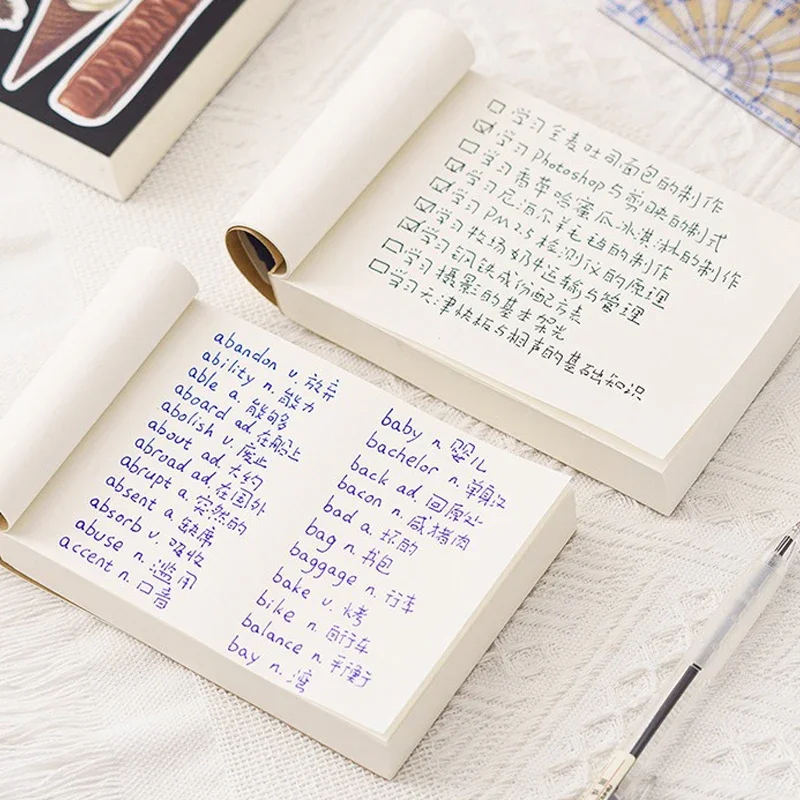 KOKUYO
☐ 学习全麦吐司面包的制作
☑ 学习Photoshop与剪映的制式
☐ 学习香草哈蜜瓜冰淇淋的制作
☑ 学习尼泊尔羊毛毡的制作
☑ 学习PM2.5检测仪的原理
☑ 学习牧场奶牛运输与管理
☑ 学习钢铁成份配方表
☐ 学习摄影的基本架光
☐ 学习天津快板与相声的基础知识
abandon v. 放弃
ability n. 能力
able a. 能够
aboard ad. 在船上
abolish v. 废止
about ad. 大约
abroad ad. 在国外
abrupt a. 突然的
absent a. 缺席
absorb v. 吸收
abuse n. 滥用
accent n. 口音
baby n. 婴儿
bachelor n. 单身汉
back ad. 回原处
bacon n. 咸猪肉
bad a. 坏的
bag n. 书包
baggage n. 行车
bake v. 烤
bike n. 自行车
balance n. 平衡
bay n. 湾